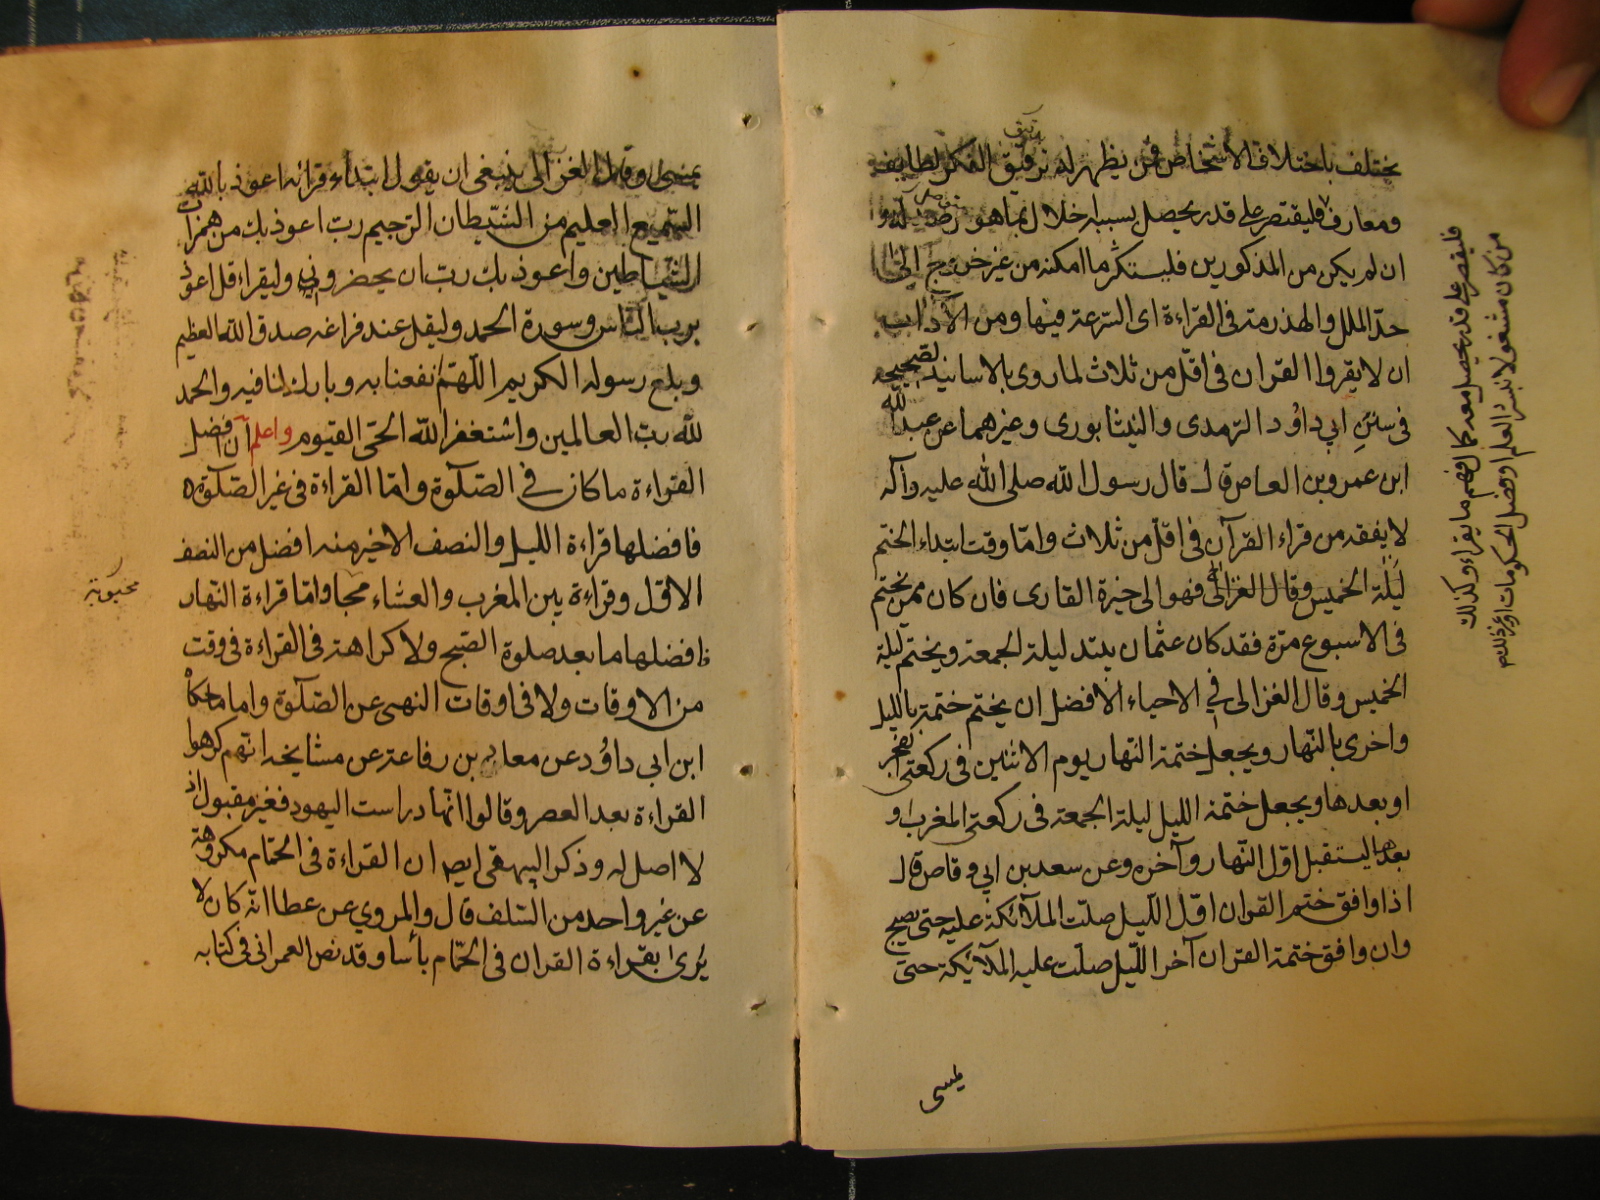 يختلف باختلاف الاشخاص فمن يظهر له بدقيق الفكر لطايف
ومعارف فليقتصر على قدر يحصل بسببه خلال بما هو له و
ان لم يكن من المذكورين فليستكثر ما امكنه من غير خروج الى
حدّ الملل والهذرمة فى القراءة اى السّرعة فيها ومن الآداب
ان لا يقروا القران فى اقلّ من ثلاث لما روى بالاسانيد لصحيحه
فى سنن ابي داوُد الترمذى والنيشابورى وغيرهما عن عبد الله
ابن عمرو بن العاص قال قال رسول الله صلى الله عليه وآله
لا يفقه من قراء القرآن فى اقلّ من ثلاث وامّا وقت ابتداء الختم
ليلة الخميس وقال الغزالى فهو الى خيرة القارى فان كان ممن يختم
فى الاسبوع مرّة فقد كان عثمان يبتد ليلة الجمعة ويختم ليلة
الخميس وقال الغزالى في الاحياء الافضل ان يختم ختمة بالليل
واخرى بالنّهار ويجعل ختمة النّهار يوم الاثنين فى ركعتى لفجر
او بعدها ويجعل ختمة الليل ليلة الجمعة فى ركعتى المغرب او
بعدها ليستقبل اوّل النّهار وآخره وعن سعد بن ابي وقاص قال
اذا وافق ختم القران اوّل اللّيل صلّت الملآئكة عليه حتى يصبح
وان وافق ختمة القران آخر اللّيل صلّت عليه الملآئكة حتى
يمسى
من كان مشغولا بنشر العلم او فصل الحكومات او غير ذلك
فليقتصر على قدر يحصل معه كمال فهم ما يقراء وكذلك
وقال الغزالى ينبغى ان يقول ابتداء قرائه اعوذ بالله
السّميع العليم من الشّيطان الرّجيم ربّ اعوذ بك من همزات
الشّياطين واعوذ بك ربّ ان يحضروني وليقراء قل اعوذ
بربّ النّاس وسورة الحمد وليقل عند فراغه صدق الله العظيم
وبلغ رسوله الكريم اللّهمّ انفعنا به وبارك لنا فيه والحمد
لله ربّ العالمين واستغفر الله الحىّ القيّوم واعلم ان افضل
القراءة ما كان فى الصّلوة وامّا القراءة فى غير الصّلوة
فافضلها قراءة الليل والنصف الاخير منه افضل من النصف
الاوّل وقراءة بين المغرب والعشاء وامّا قراءة النّهار
فافضلها ما بعد صلوة الصّبح ولا كراهة فى القراءة فى وقت
من الاوقات ولا فى اوقات النهى عن الصّلوة واما ما حكاه
ابن ابي داوُد عن معان بن رفاعة عن مشايخه انّهم كرهوا
القراءة بعد العصر وقالوا انّها دراست اليهود فغير مقبول اذ
لا اصل له وذكر البيهقى ايضا ان القراءة فى الحمّام مكروهة
عن غير واحد من السّلف قال والمروي عن عطا انّه كان لا
يرى بقراءة القران فى الحمّام بأسا وقد نص العمرانى فى كتابه
محبوبة